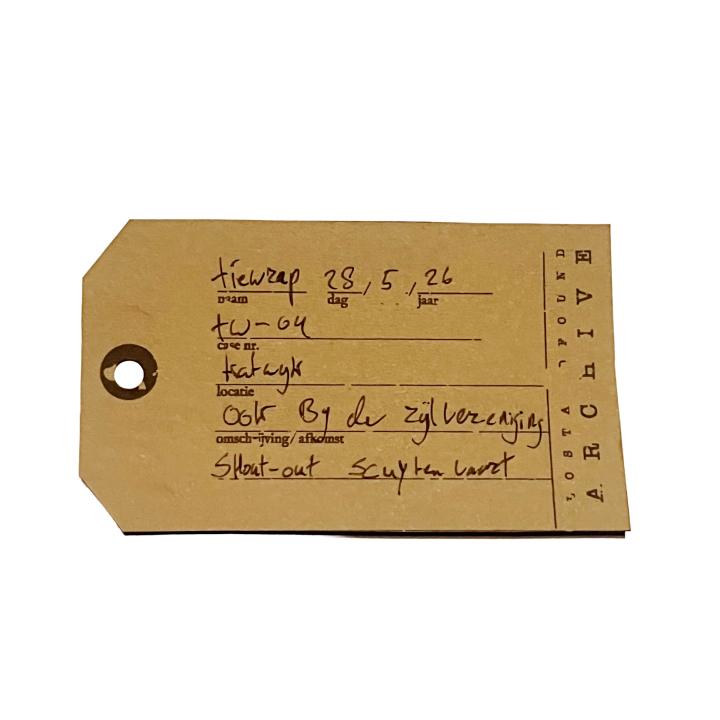 tiewrap 28, 5, 26
naam dag jaar
tw-04
case nr.
katwyk
locatie
ook By de zijlvereniging
omschrijving/ afkomst
SHout-out scuyten vaart
LOST & FOUND
ARChIVE